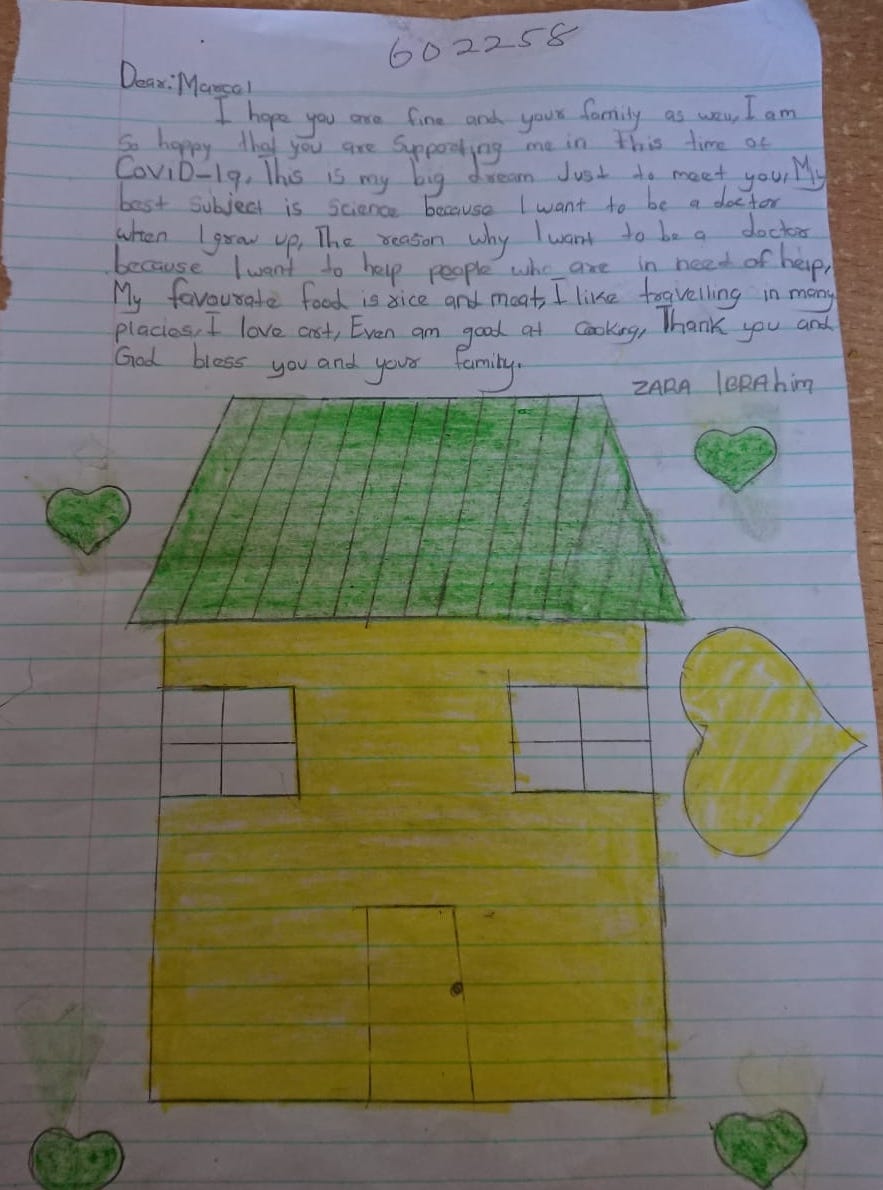 602258
Dear: Marcel
I hope you are fine and your family as well, I am
So happy that you are Supporting me in this time of
CoviD-19, This is my big dream Just to meet you, My
best Subject is Science because I want to be a doctor
when I grow up, The reason why I want to be a doctor
because I want to help people who are in need of help,
My favourate food is rice and meat, I like travelling in many
placies, I love art, Even am good at Cooking, Thank you and
God bless you and your family.
ZARA IBRAhim